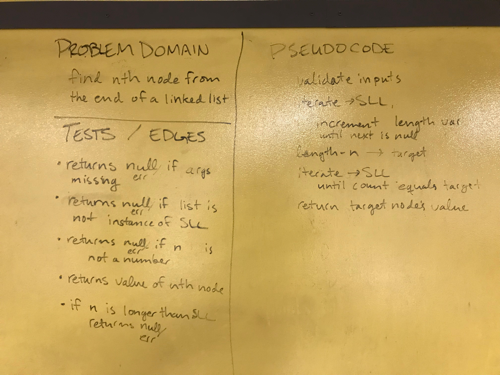 PROBLEM DOMAIN
find nth node from
the end of a linked list
TESTS / EDGES
• returns null if args
err
missing
• returns null if list is
err
not instance of SLL
• returns null if n is
err
not a number
• returns value of nth node
• if n is longer than SLL
returns null
err
PSEUDOCODE
validate inputs
iterate → SLL,
increment length var
until next is null
length-n → target
iterate → SLL
until count equals target
return target node's value